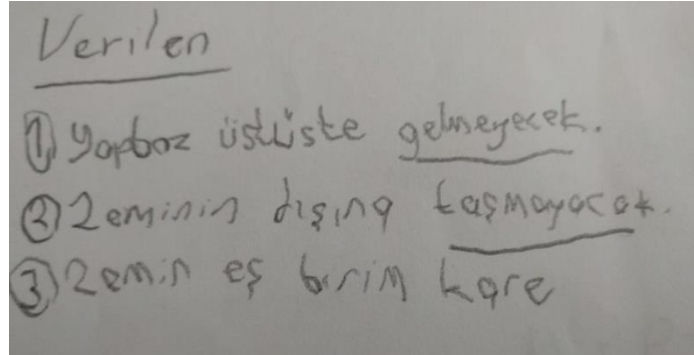 Verilen
① Yapboz üstüste gelmeyecek.
② Zeminin dışına taşmayacak.
③ Zemin eş birim kare